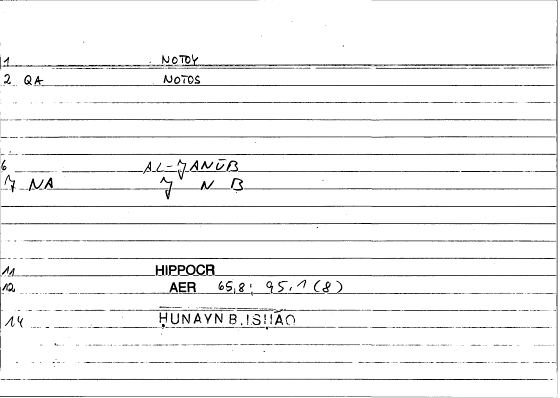 1 NOTOY
2 QA NOTOS
6 AL-JANŪB
7 NA J N B
11 HIPPOCR
12 AER 65,8; 95,1 (8)
14 ḤUNAYN B. ISḤĀQ